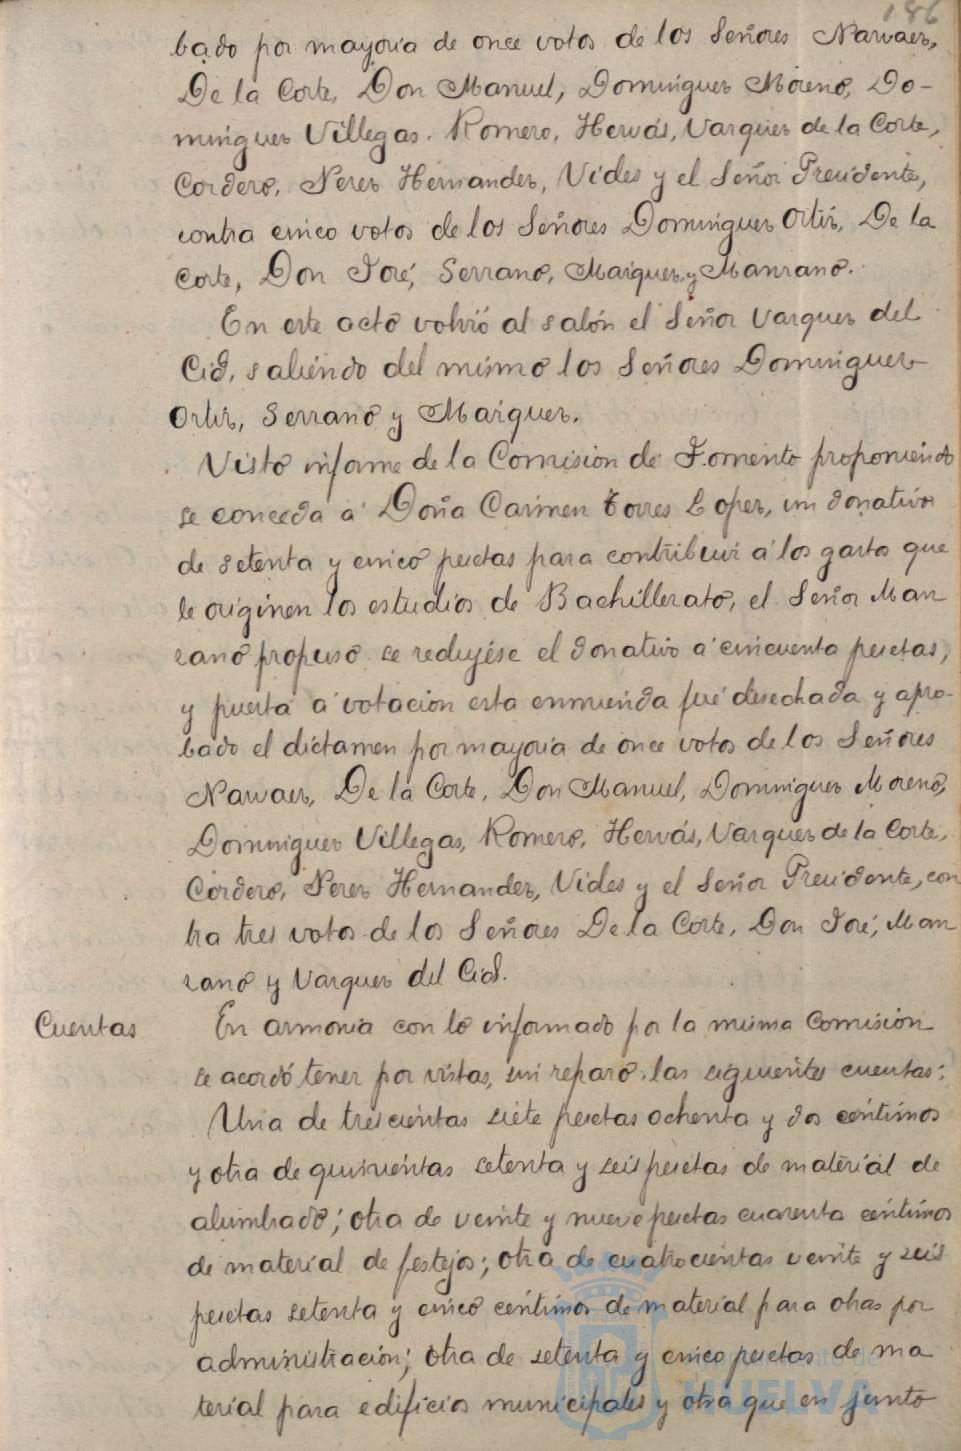 186
bado por mayoría de once votos de los Señores Narvaez,
De la Corte, Don Manuel, Dominguez Moreno, Do-
minguez Villegas. Romero, Hervás, Vazquez de la Corte,
Cordero, Perez Hernandez, Vides y el Señor Presidente,
contra cinco votos de los Señores Dominguez Ortiz, De la
Corte, Don José, Serrano, Maiquez y Manzano.
En este acto volvió al salón el Señor Vazquez del
Cid, saliendo del mismo los Señores Dominguez
Ortiz, Serrano y Maiquez.
Visto informe de la Comision de Fomento proponiendo
se conceda á Doña Carmen Torres Lopez, un donativo
de setenta y cinco pesetas para contribuir á los gastos que
le originen los estudios de Bachillerato, el Señor Man
zano propuso se redujése el donativo á cincuenta pesetas,
y puesta á votacion esta enmienda fué desechada y apro-
bado el dictamen por mayoría de once votos de los Señores
Narvaez, De la Corte, Don Manuel, Dominguez Moreno,
Dominguez Villegas, Romero, Hervás, Vazquez de la Corte,
Cordero, Perez Hernandez, Vides y el Señor Presidente, con
tra tres votos de los Señores De la Corte, Don José, Man
zano y Vazquez del Cid.
Cuentas En armonia con lo informado por la misma Comisión
se acordó tener por vistas, sin reparo, las siguientes cuentas:
Una de trescientas siete pesetas ochenta y dos céntimos
y otra de quinientas setenta y seis pesetas de material de
alumbrado; otra de veinte y nueve pesetas cuarenta céntimos
de material de festejos; otra de cuatrocientas veinte y seis
pesetas setenta y cinco céntimos de material para obras por
administración; otra de setenta y cinco pesetas de ma
terial para edificios municipales y otra que en junto
Ayuntamiento de
HUELVA